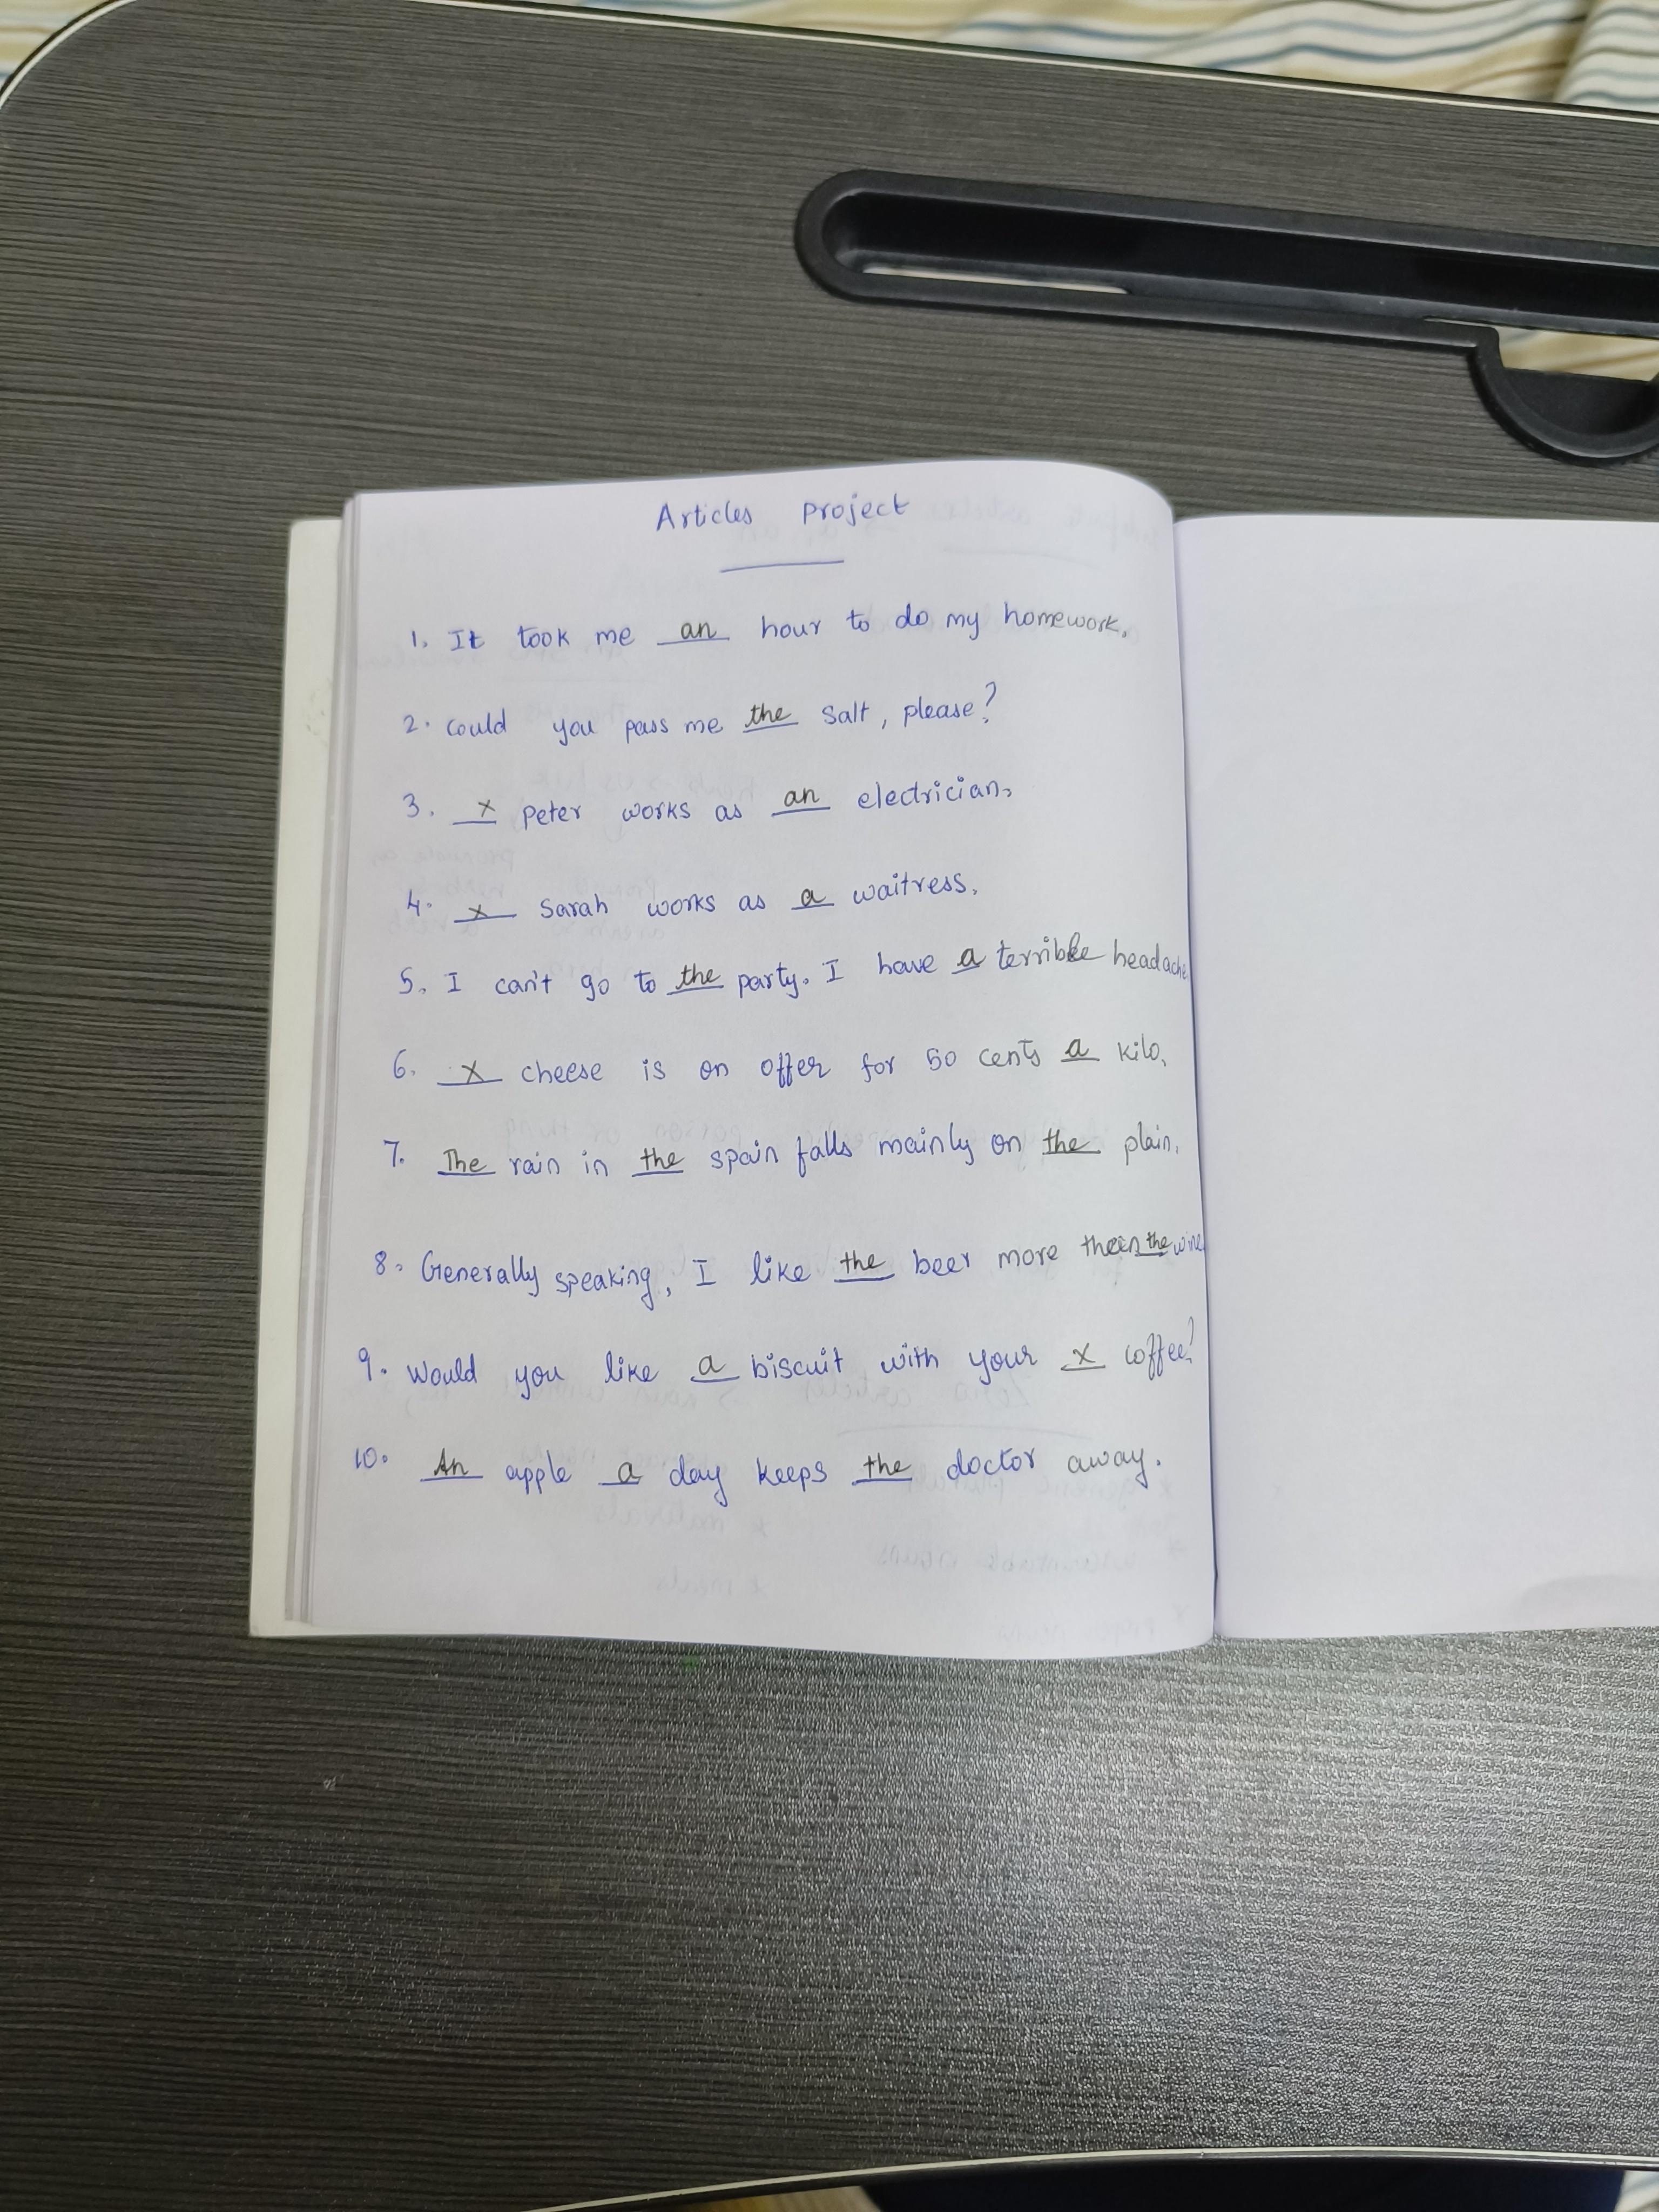 Articles project
1. It took me an hour to do my homework.
2. Could you pass me the salt, please?
3. x Peter works as an electrician.
4. x Sarah works as a waitress.
5. I can't go to the party. I have a terrible headache
6. x cheese is on offer for 50 cents a kilo.
7. The rain in the spain falls mainly on the plain.
8. Generally speaking, I like the beer more than the wine
9. Would you like a biscuit with your x coffee?
10. An apple a day keeps the doctor away.